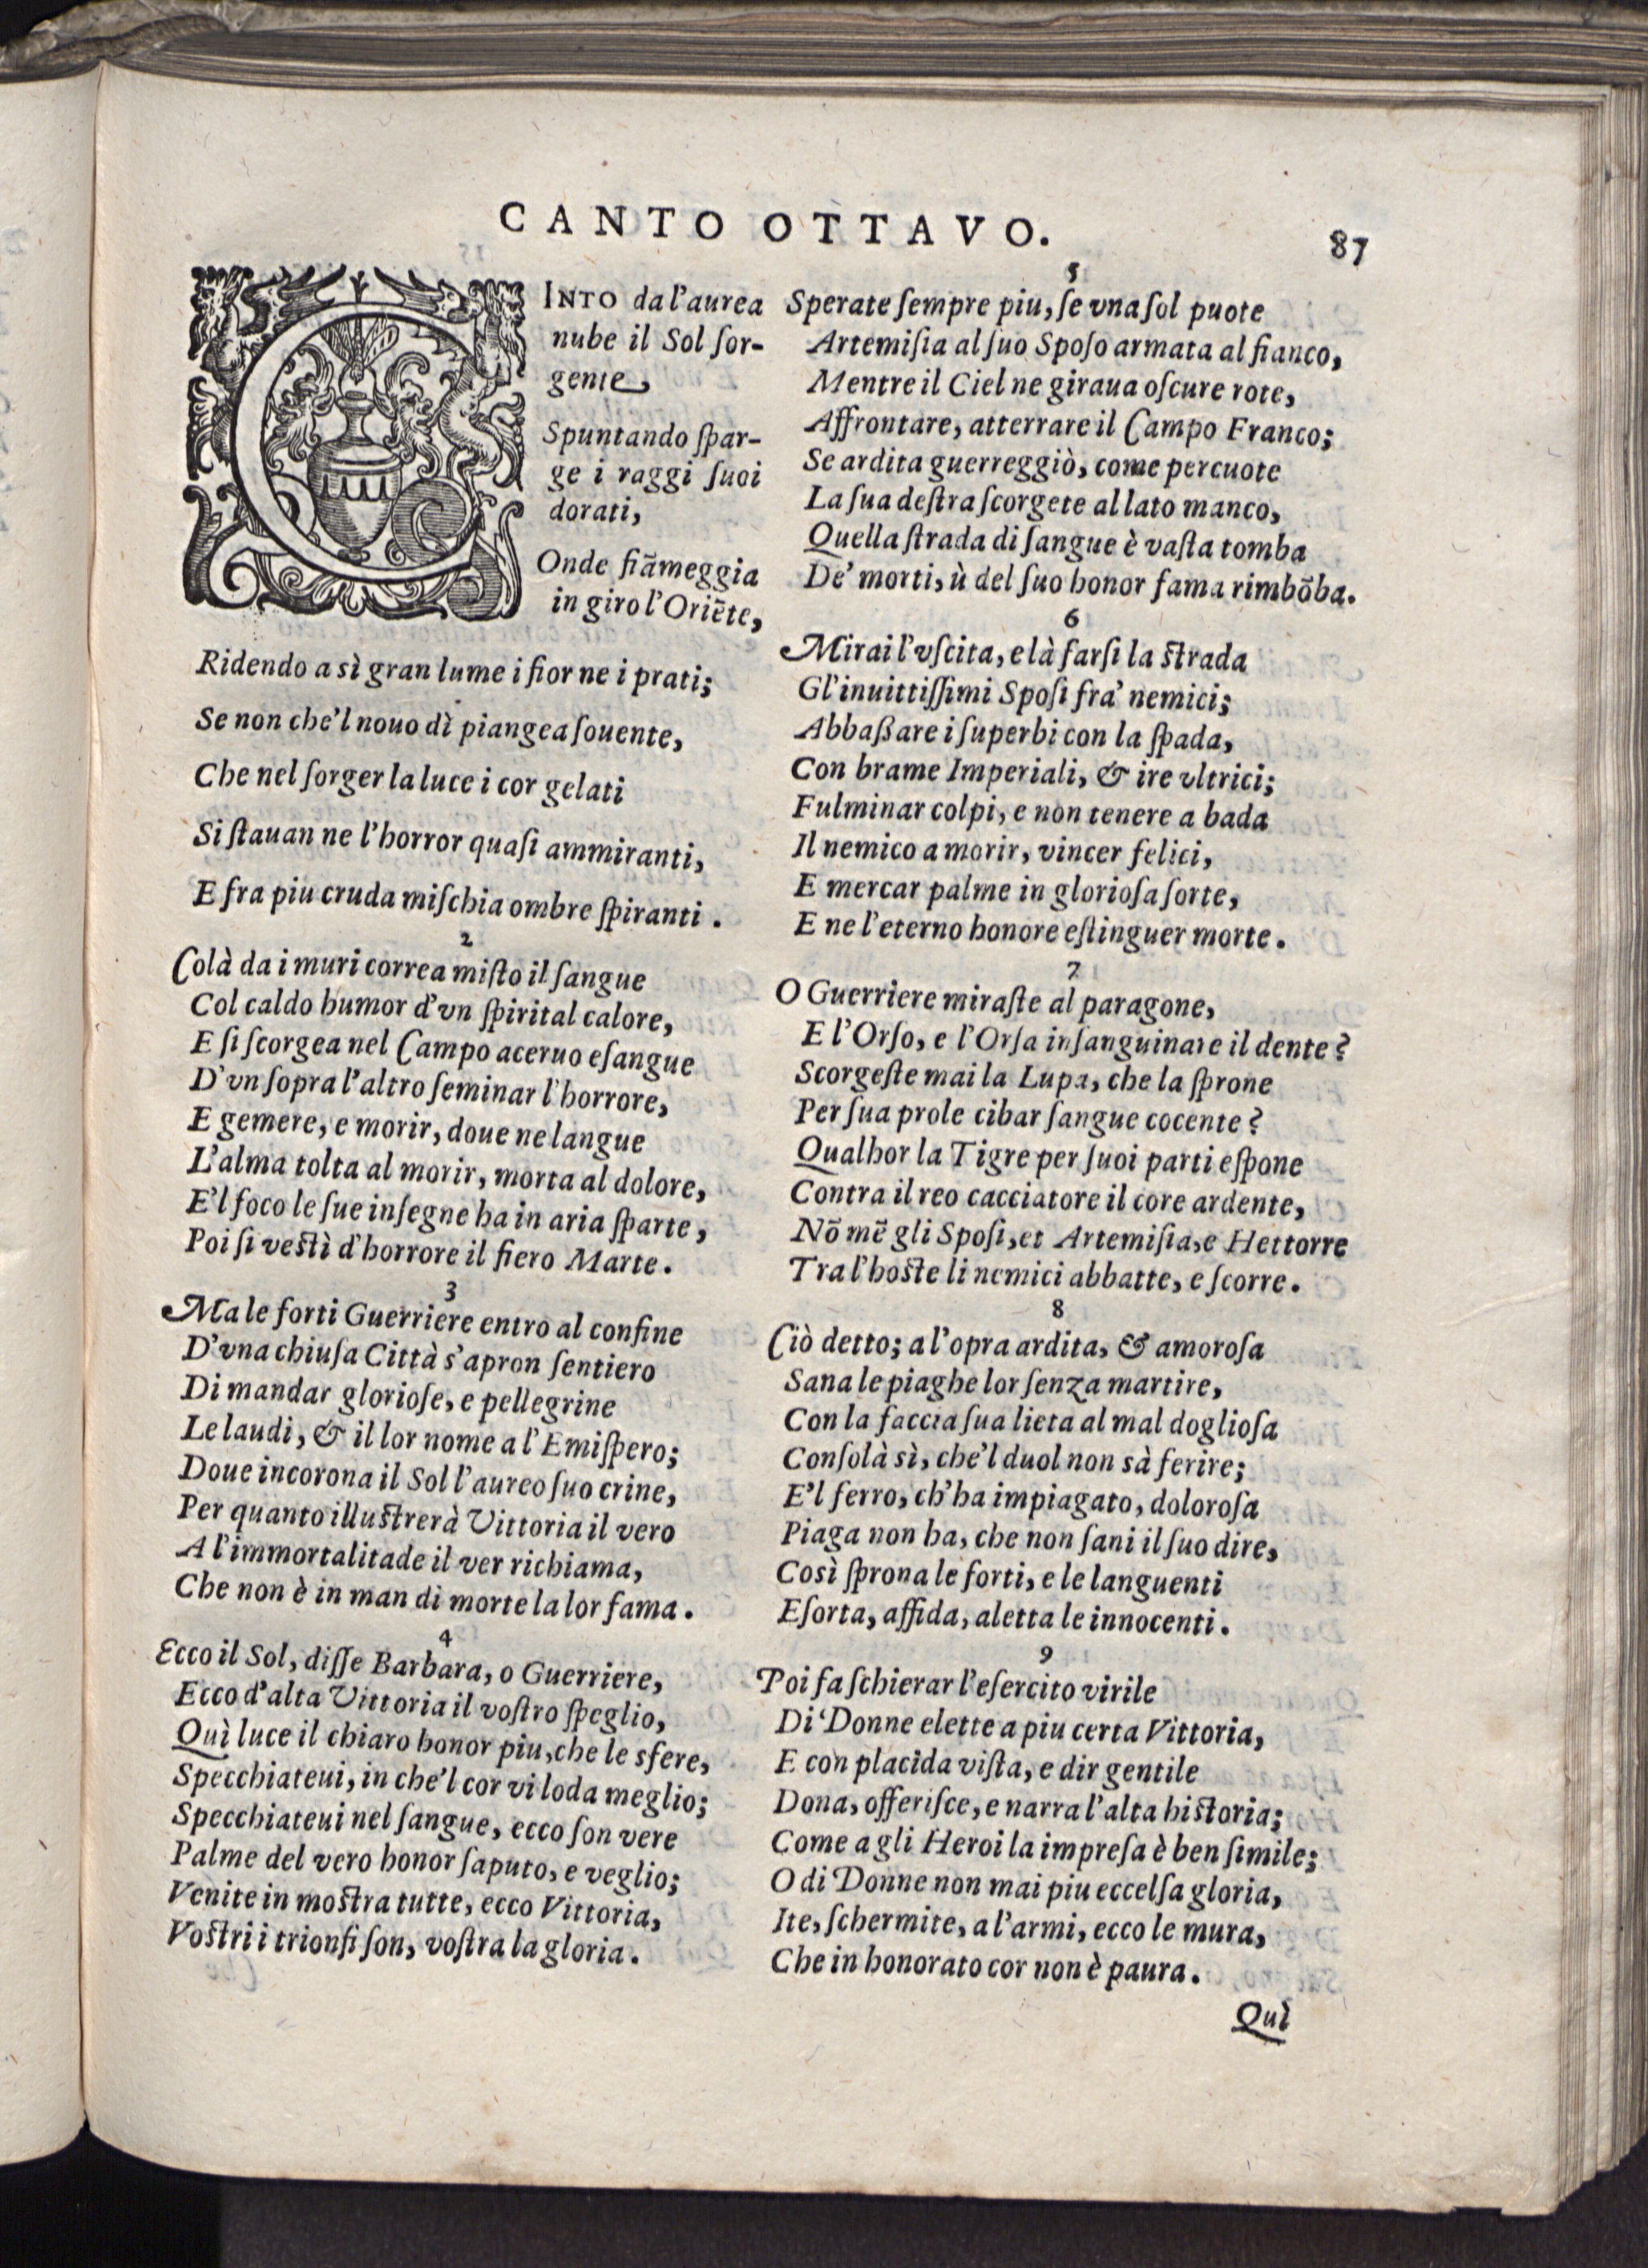 CANTO OTTAVO.
87
CINTO da l'aurea
nube il Sol ſor-
gente
Spuntando ſpar-
ge i raggi ſuoi
dorati,
Onde fiãmeggia
in giro l'Oriẽte,
Ridendo a sì gran lume i fior ne i prati;
Se non che'l nouo dì piangea ſouente,
Che nel ſorger la luce i cor gelati
Si ſtauan ne l'horror quaſi ammiranti,
E fra piu cruda miſchia ombre ſpiranti.
2
Colà da i muri correa miſto il ſangue
Col caldo humor d'vn ſpirital calore,
E ſi ſcorgea nel Campo aceruo eſangue
D'vn ſopra l'altro ſeminar l'horrore,
E gemere, e morir, doue ne langue
L'alma tolta al morir, morta al dolore,
E'l foco le ſue inſegne ha in aria ſparte,
Poi ſi veſtì d'horrore il fiero Marte.
3
Ma le forti Guerriere entro al confine
D'vna chiuſa Città s'apron ſentiero
Di mandar glorioſe, e pellegrine
Le laudi, & il lor nome a l'Emiſpero;
Doue incorona il Sol l'aureo ſuo crine,
Per quanto illuſtrerà Vittoria il vero
A l'immortalitade il ver richiama,
Che non è in man di morte la lor fama.
4
Ecco il Sol, diſſe Barbara, o Guerriere,
Ecco d'alta Vittoria il voſtro ſpeglio,
Quì luce il chiaro honor piu, che le sfere,
Specchiateui, in che'l cor vi loda meglio;
Specchiateui nel ſangue, ecco ſon vere
Palme del vero honor ſaputo, e veglio;
Venite in moſtra tutte, ecco Vittoria,
Voſtri i trionfi ſon, voſtra la gloria.
5
Sperate ſempre piu, ſe vna ſol puote
Artemiſia al ſuo Spoſo armata al fianco,
Mentre il Ciel ne giraua oſcure rote,
Affrontare, atterrare il Campo Franco;
Se ardita guerreggiò, come percuote
La ſua deſtra ſcorgete al lato manco,
Quella ſtrada di ſangue è vaſta tomba
De' morti, ù del ſuo honor fama rimbõba.
6
Mirai l'vſcita, e là farſi la ſtrada
Gl'inuittiſſimi Spoſi fra' nemici;
Abbaßare i ſuperbi con la ſpada,
Con brame Imperiali, & ire vltrici;
Fulminar colpi, e non tenere a bada
Il nemico a morir, vincer felici,
E mercar palme in glorioſa ſorte,
E ne l'eterno honore eſtinguer morte.
7
O Guerriere miraſte al paragone,
E l'Orſo, e l'Orſa inſanguinare il dente?
Scorgeſte mai la Lupa, che la ſprone
Per ſua prole cibar ſangue cocente?
Qualhor la Tigre per ſuoi parti eſpone
Contra il reo cacciatore il core ardente,
Nõ mẽ gli Spoſi, et Artemiſia, e Hettorre
Tra l'hoſte li nemici abbatte, e ſcorre.
8
Ciò detto; a l'opra ardita, & amoroſa
Sana le piaghe lor ſenza martire,
Con la faccia ſua lieta al mal doglioſa
Conſolà sì, che'l duol non sà ferire;
E'l ferro, ch'ha impiagato, doloroſa
Piaga non ha, che non ſani il ſuo dire,
Così ſprona le forti, e le languenti
Eſorta, affida, aletta le innocenti.
9
Poi fa ſchierar l'eſercito virile
Di Donne elette a piu certa Vittoria,
E con placida viſta, e dir gentile
Dona, offeriſce, e narra l'alta hiſtoria;
Come a gli Heroi la impreſa è ben ſimile;
O di Donne non mai piu eccelſa gloria,
Ite, ſchermite, a l'armi, ecco le mura,
Che in honorato cor non è paura.
Quì